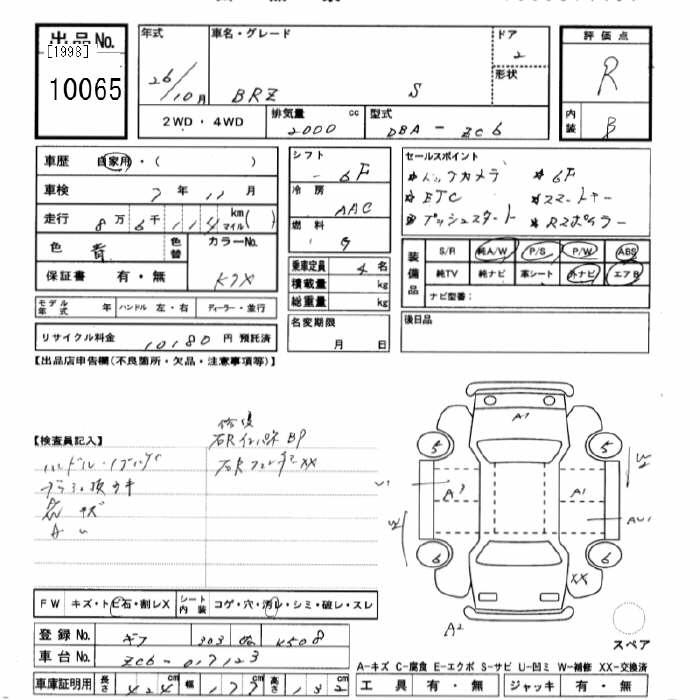 出品No.
[1998]
10065
年式
26/10月
車名・グレード
BRZ S
ドア
2
形状
評価点
R
内装
B
2WD・4WD
排気量
2000 cc
型式
DBA-ZC6
車歴 自家用・( )
車検 7年11月
走行 8万6千114 km マイル( )
色 青 色替 カラーNo.
K7X
保証書 有・無
シフト
6F
冷房
AAC
燃料
G
乗車定員 4名
積載量 kg
総重量 kg
名変期限
月 日
セールスポイント
バックカメラ 6F
ETC スマートキー
プッシュスタート
装備品
S/R 純A/W P/S P/W ABS
純TV 純ナビ 革シート 外ナビ エアB
ナビ型番:
後日品
モデル年式 年 ハンドル 左・右 ディーラー・並行
リサイクル料金 10180 円 預託済
【出品店申告欄(不良箇所・欠品・注意事項等)】
【検査員記入】
修復
XX
A1
5 5
W2
A3 A1
U1
AU1
W2
6 6
XX
A2
スペア
FW キズ・トビ石・割レX シート内装 コゲ・穴・汚レ・シミ・破レ・スレ
登録No. ギフ 303 K508
車台No. ZC6-017123
車庫証明用 長さ 424 cm 幅 177 cm 高さ 132
A-キズ C-腐食 E-エクボ S-サビ U-凹ミ W-補修 XX-交換済
工具 有・無 ジャッキ 有・無